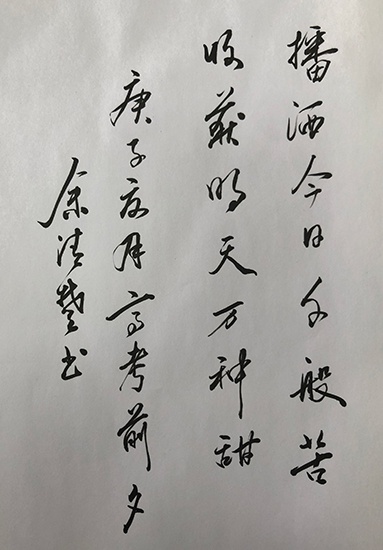 播洒今日千般苦
收获明天万种甜
庚子夏月高考前夕
余清楚书